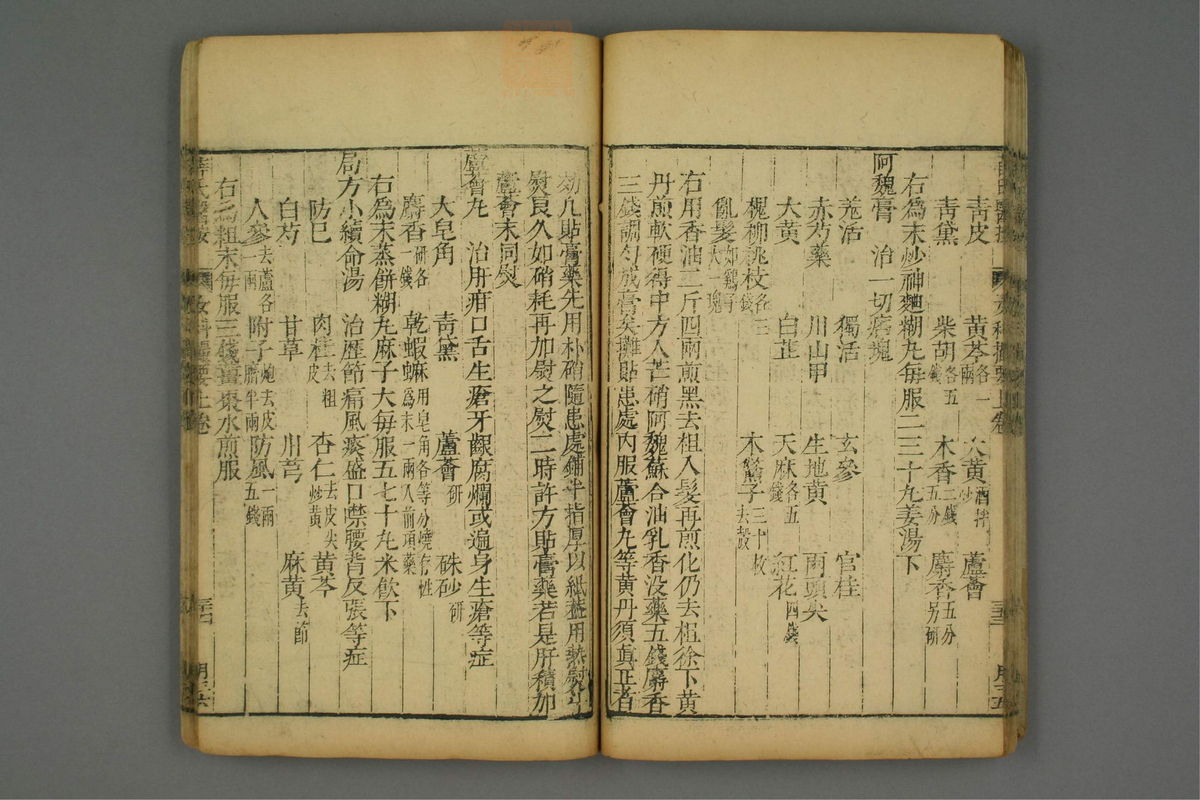 青皮　黃芩各一兩　大黃酒拌炒　蘆薈
青黛　柴胡各五錢　木香二錢五分　麝香五分另研
右為末炒神麯糊丸每服二三十丸姜湯下
阿魏膏　治一切痞塊
羌活　獨活　玄參　官桂
赤芍藥　川山甲　生地黃　兩頭尖
大黃　白芷　天麻各五錢　紅花四錢
槐柳桃枝各三錢　木鱉子三十枚去殼
亂髮如雞子大一塊
右用香油二斤四兩煎黑去柤入髮再煎化仍去柤徐下黃
丹煎軟硬得中方入芒硝阿魏蘇合油乳香沒藥五錢麝香
三錢調勻成膏矣攤貼患處內服蘆薈丸等黃丹須真正者
効凡貼膏藥先用朴硝隨患處鋪半指厚以紙蓋用熱熨斗
熨良久如硝耗再加熨之熨二時許方貼膏藥若是肝積加
蘆薈末同熨
蘆薈丸　治肝疳口舌生瘡牙齦腐爛或遍身生瘡等症
大皂角　青黛　蘆薈研　硃砂研
麝香研各一錢　乾蝦蟆用皂角各等分燒存性為末一兩入前項藥
右為末蒸餅糊丸麻子大每服五七十丸米飲下
局方小續命湯　治歷節痛風痰盛口噤腰背反張等症
防巳　肉桂去粗皮　杏仁去皮尖炒黃　黃芩
白芍　甘草　川芎　麻黃去節
人參去蘆各一兩　附子炮去皮臍半兩　防風一兩五錢
右為粗末每服三錢薑棗水煎服